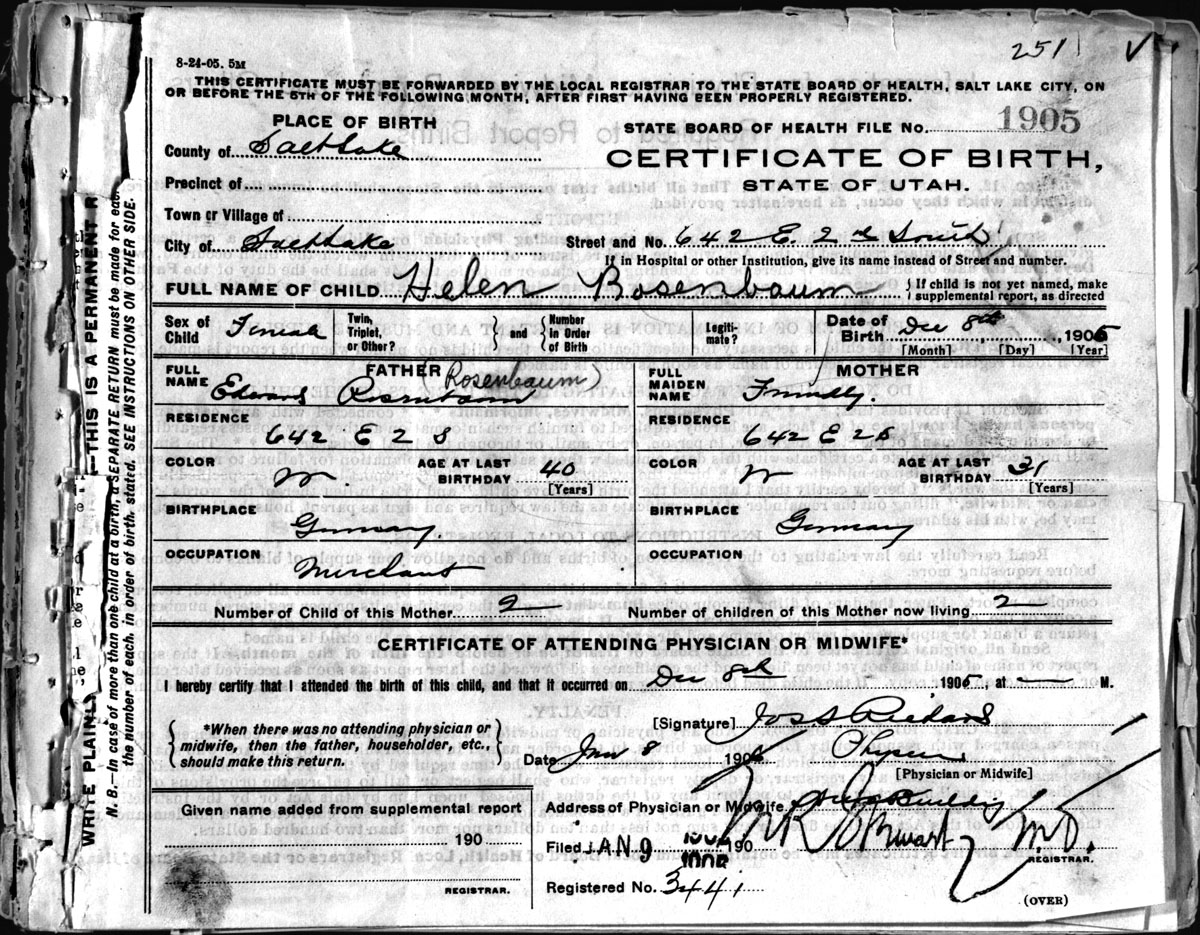 251 V
8-24-05. 5M
THIS CERTIFICATE MUST BE FORWARDED BY THE LOCAL REGISTRAR TO THE STATE BOARD OF HEALTH, SALT LAKE CITY, ON
OR BEFORE THE 5TH OF THE FOLLOWING MONTH, AFTER FIRST HAVING BEEN PROPERLY REGISTERED.
PLACE OF BIRTH
STATE BOARD OF HEALTH FILE No. 1905
County of Salt Lake
CERTIFICATE OF BIRTH,
Precinct of
STATE OF UTAH.
Town or Village of
City of Salt Lake Street and No. 642 E. 2nd South
If in Hospital or other Institution, give its name instead of Street and number.
FULL NAME OF CHILD Helen Rosenbaum { If child is not yet named, make
supplemental report, as directed
Sex of Child Female Twin, Triplet, or Other? } and { Number in Order of Birth Legiti-mate? Date of Birth Dec 8th, 1905
[Month] [Day] [Year]
FATHER
FULL NAME Edward Rosenbaum (Rosenbaum)
MOTHER
FULL MAIDEN NAME Friendly.
RESIDENCE 642 E 2 S
RESIDENCE 642 E 2 S
COLOR W. AGE AT LAST BIRTHDAY 40 [Years]
COLOR W AGE AT LAST BIRTHDAY 31 [Years]
BIRTHPLACE Germany
BIRTHPLACE Germany
OCCUPATION Merchant
OCCUPATION
Number of Child of this Mother 2 Number of children of this Mother now living 2
CERTIFICATE OF ATTENDING PHYSICIAN OR MIDWIFE*
I hereby certify that I attended the birth of this child, and that it occurred on Dec 8th 1905, at — M.
{ *When there was no attending physician or
midwife, then the father, householder, etc.,
should make this return. }
[Signature] Jos S Richards
Date Jan 8 190
[Physician or Midwife]
Given name added from supplemental report
190
REGISTRAR.
Address of Physician or Midwife
Filed JAN 9 190
M.D.
REGISTRAR.
Registered No. 3441
(OVER)
WRITE PLAINLY —THIS IS A PERMANENT R
N. B.—In case of more than one child at a birth, a SEPARATE RETURN must be made for each,
the number of each, in order of birth, stated. SEE INSTRUCTIONS ON OTHER SIDE.